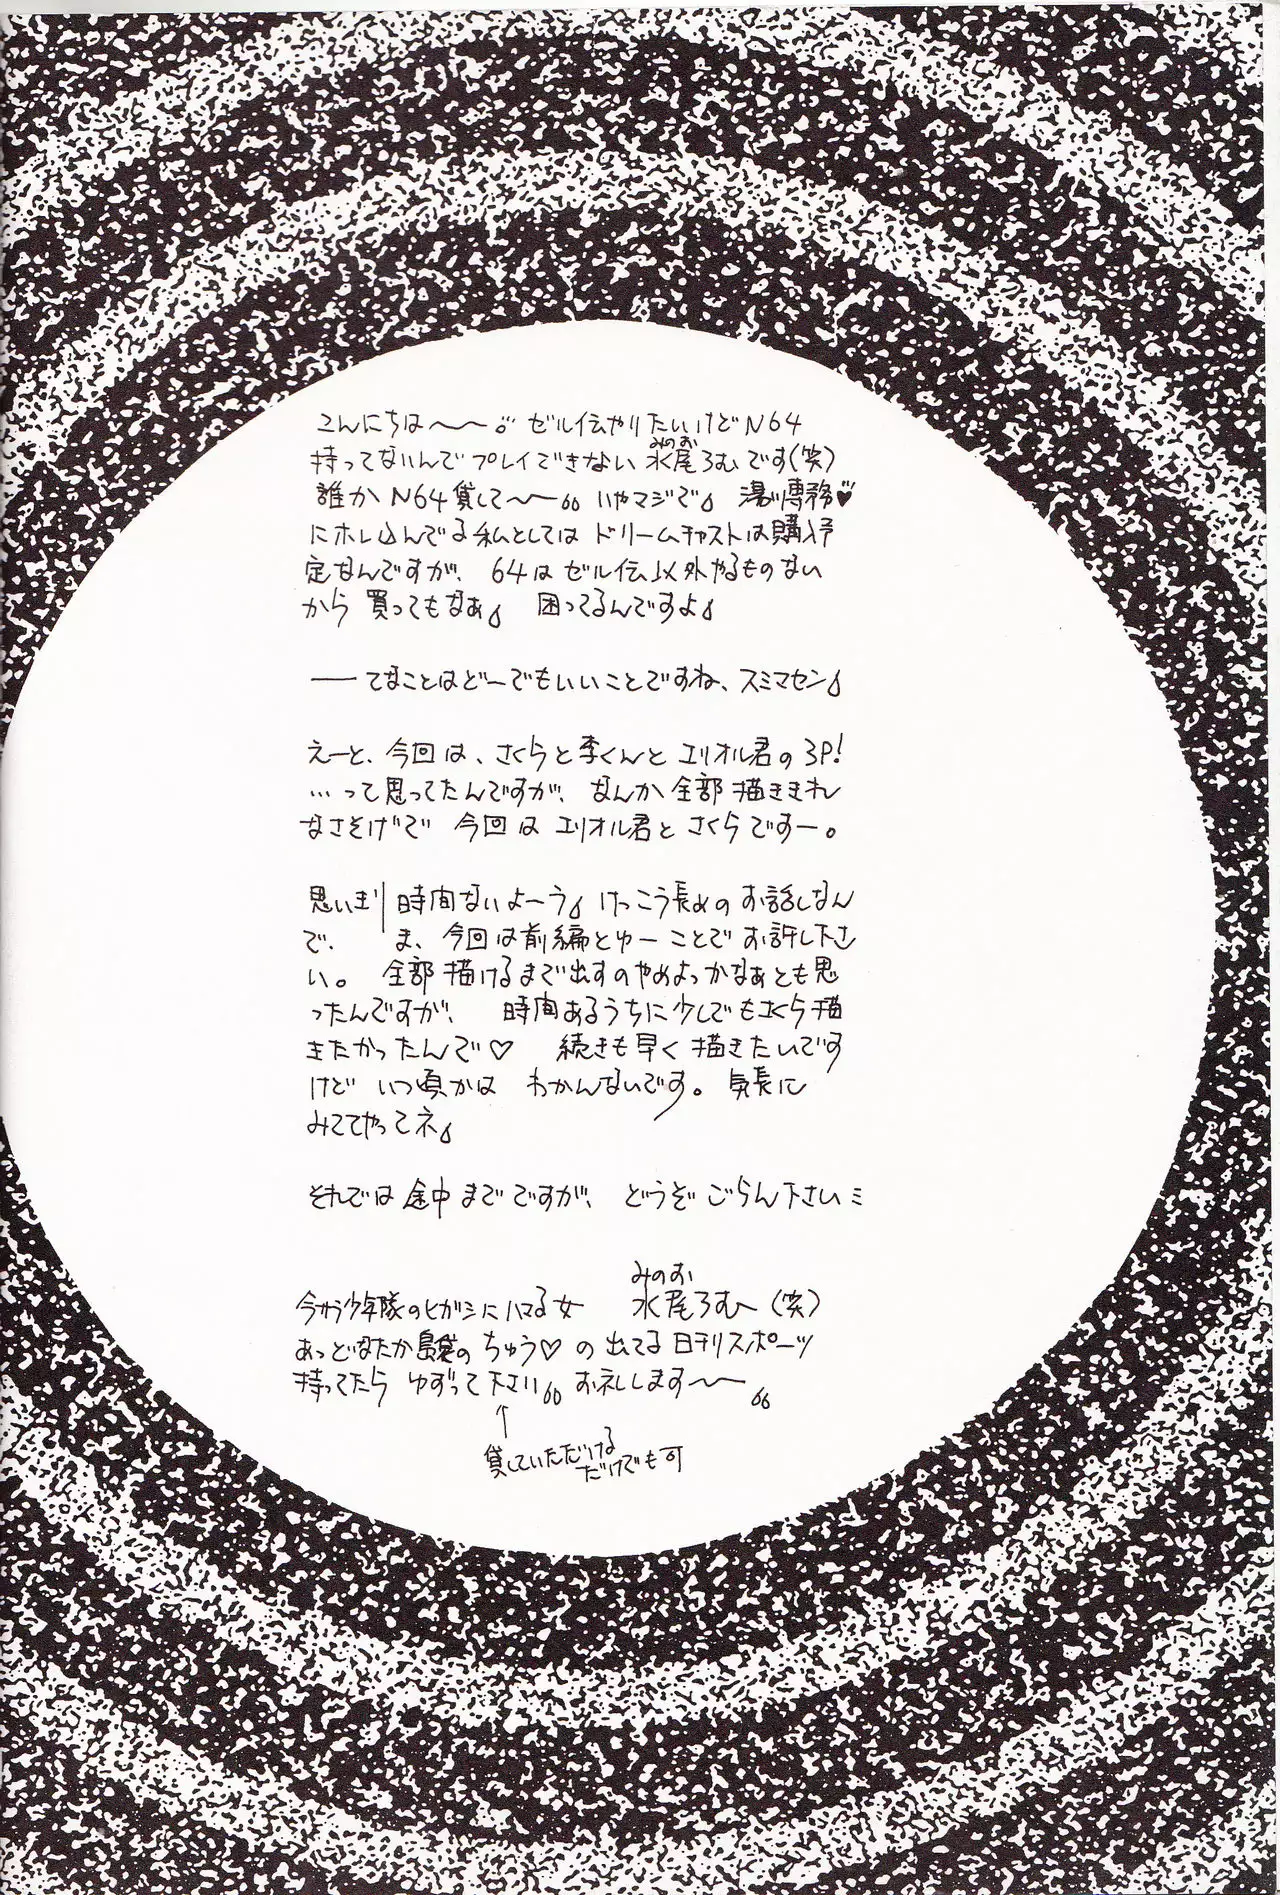 こんにちは〜〜 ゼル伝やりたいけどN64
持ってないんでプレイできない水尾ろむです(笑)
みのお
誰かN64貸して〜〜 いやマジで 湯川専務♥
にホレ込んでる私としてはドリームキャストは購入予
定なんですが、64はゼル伝以外やるものない
から買ってもなぁ 困ってるんですよ
――てなことはどーでもいいことですね、スミマセン
えーと、今回は、さくらと李くんとエリオル君の3P!
…って思ってたんですが、なんか全部描ききれ
なさそげで今回はエリオル君とさくらですー。
思いっきり時間ないよーう けっこう長めのお話しなん
で、ま、今回は前編とゆーことでお許し下さ
い。全部描けるまで出すのやめよっかなぁとも思
ったんですが、時間あるうちに少しでもさくら描
きたかったんで♡ 続きも早く描きたいです
けどいつ頃かはわかんないです。気長に
みててやってネ
それでは途中までですが、どうぞごらん下さいミ
今から少年隊のヒガシにハマる女 水尾ろむ(笑)
みのお
あっどなたか のちゅう♡の出てる日刊スポーツ
持ってたらゆずって下さい お礼します〜〜
↑
貸していただける
だけでも可